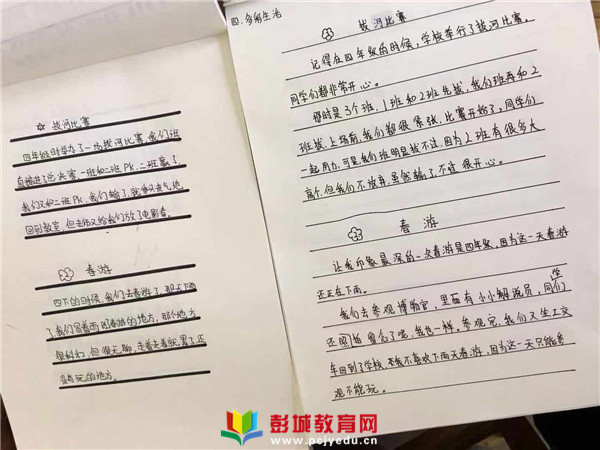 拔河比赛
四年级时举办了一场拔河比赛,我们班
直接进了总决赛,一班和二班PK,二班赢了,
我们又和二班PK,我们输了,就垂头丧气地
回到教室,但老师又给我们放了电影看。
春游
四下的时候,我们去春游了,那天下雨
了我们冒着雨
的地方,那个地方
很
但很无聊,走着走着就累了还
没有玩的地方。
四、多彩生活
拔河比赛
记得在四年级的时候,学校举行了拔河比赛。
同学们都非常开心。
那时是3个班,1班和2班先拔,我们班再和2
班拔,上场前,我们都很紧张,比赛开始了,同学们
一起用力,可是我们班明显拔不过,因为2班有很多大
高个,但我们不放弃,虽然输了,不过很开心。
春游
让我印象最深的一次春游是四年级,因为这一天春游
还正在下雨。
我们去参观博物官,里面有小小解说员,同学们
还照
我也一样。参观完,我们又坐上大
车回到了学校,
我不喜欢下雨天春游,因为这一天只能参
观不能玩。
彭城教育网
www.pcjyedu.cn